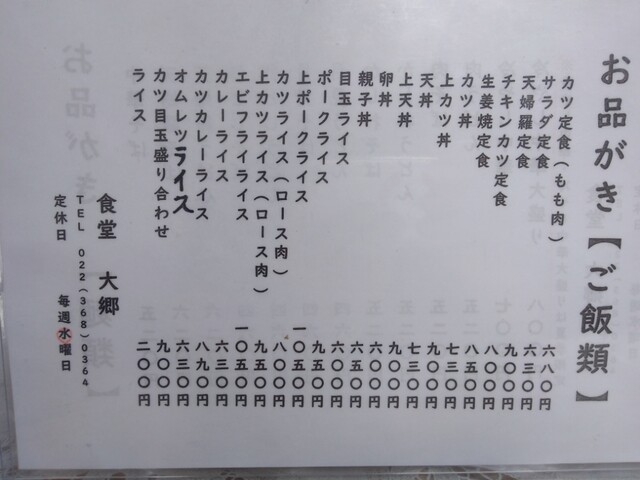 お品がき【ご飯類】
カツ定食(もも肉) 六八〇円
サラダ定食 六三〇円
天婦羅定食 九〇〇円
チキンカツ定食 八〇〇円
生姜焼定食 八五〇円
カツ丼 七三〇円
上カツ丼 九〇〇円
天丼 七三〇円
上天丼 九〇〇円
卵丼 六〇〇円
親子丼 六五〇円
目玉ライス 六〇〇円
ポークライス 九五〇円
上ポークライス 一〇五〇円
カツライス(ロース肉) 八〇〇円
上カツライス(ロース肉) 九五〇円
エビフライライス 一〇五〇円
カレーライス 六三〇円
カツカレーライス 八九〇円
オムレツライス 六三〇円
カツ目玉盛り合わせ 九〇〇円
ライス 二〇〇円
食堂 大郷
TEL 022(368)0364
定休日 毎週水曜日